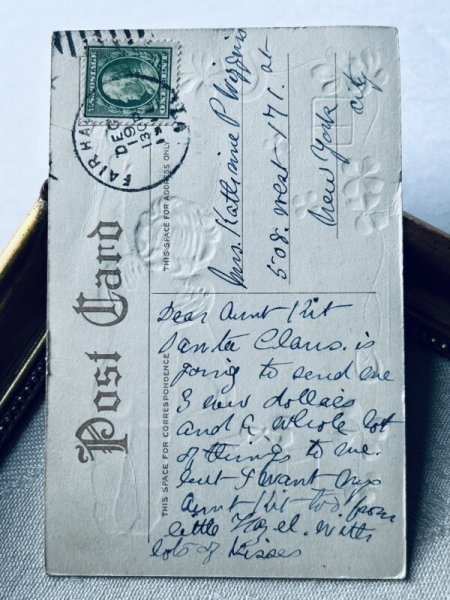 U.S. POSTAGE
ONE CENT
FAIR HA
DEC
19
130
Post Card
THIS SPACE FOR ADDRESS ONLY
THIS SPACE FOR CORRESPONDENCE
Mrs. Katherine P Higgins
508. West 171. st
New York
City
Dear Aunt Kit
Santa Claus. is
going to send me
3 new dollies
and a whole lot
of things to me.
but I want my
Aunt Kit to. from
little Hazel. with
lots of kisses